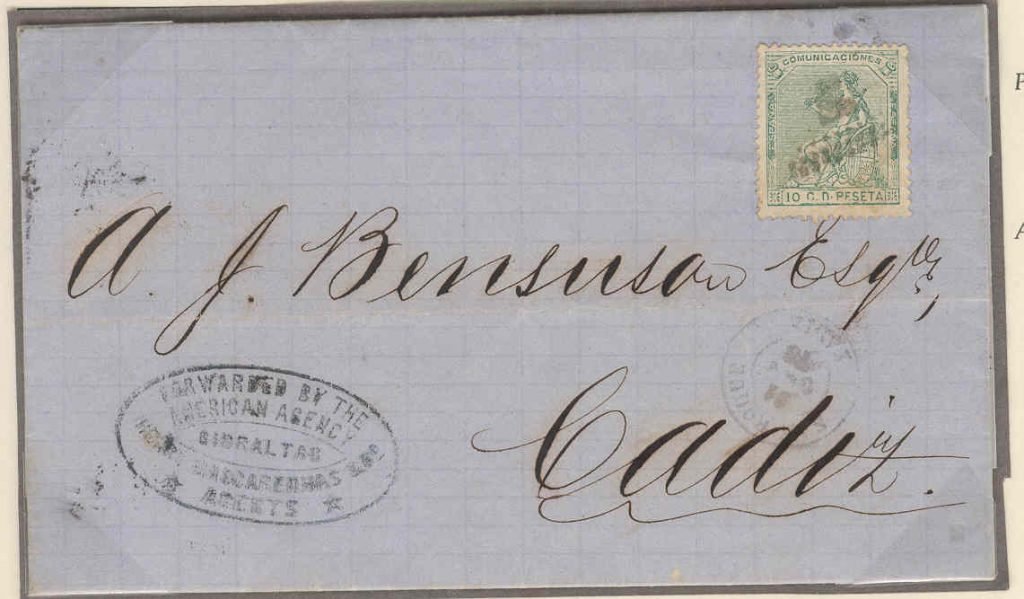 COMUNICACIONES
ESPAÑA
10 C. D. PESETA
A. J. Bensuson Esqre,
Cadiz.
FORWARDED BY THE
AMERICAN AGENCY
GIBRALTAR
MASCARENHAS & Co
AGENTS
P
A